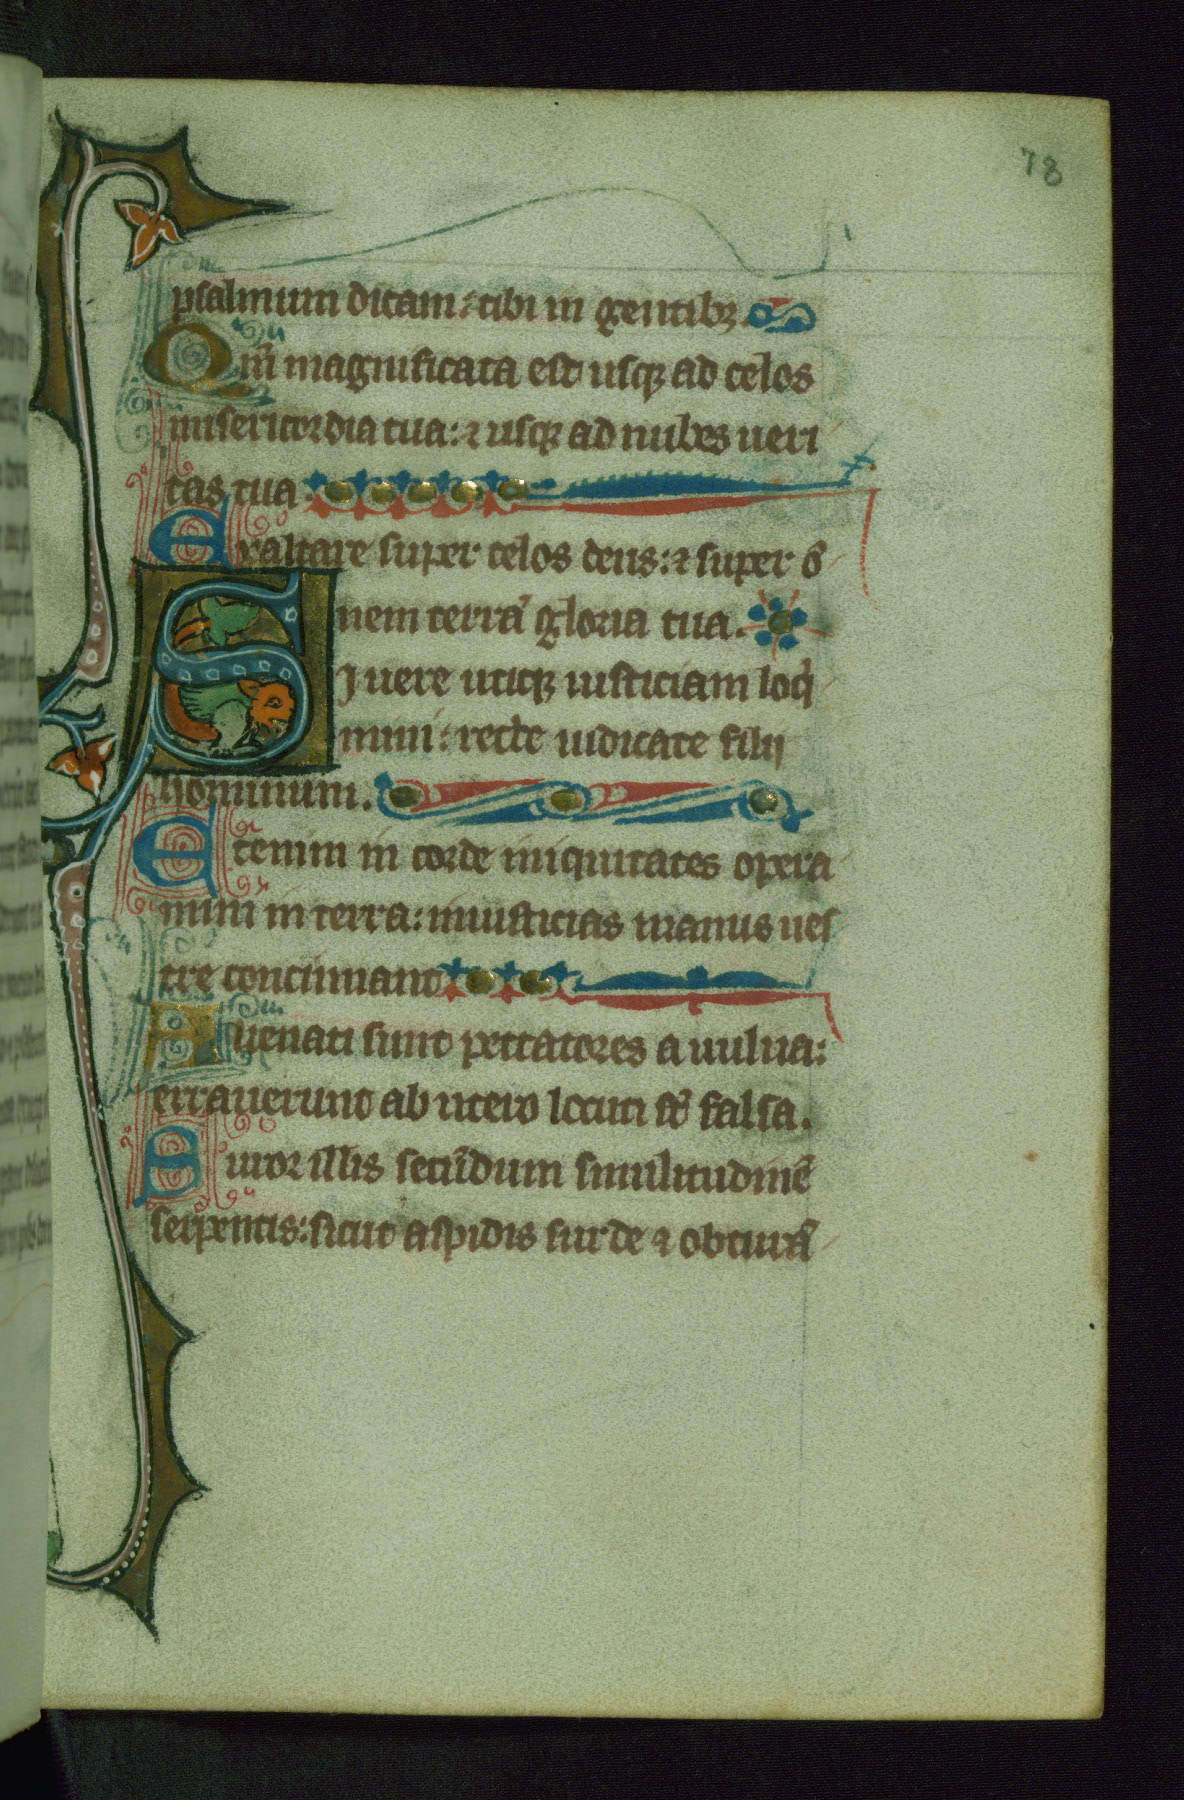 78
psalmum dicam: tibi in gentibꝫ.
Qm̄ magnificata est usqꝫ ad celos
misericordia tua: ⁊ usqꝫ ad nubes ueri
tas tua.
Exaltare super celos deus: ⁊ super o͞
nem terrā gloria tua.
SI uere utiqꝫ iusticiam loq̇
mini: recte iudicate filij
hominum.
Etenim in corde iniquitates opera
mini in terra: iniusticias manus ues
tre concinnant
Alienati sunt peccatores a uulua:
errauerunt ab utero locuti st̄ falsa.
Furor illis secūdum similitudinē
serpentis: sicut aspidis surde ⁊ obturā